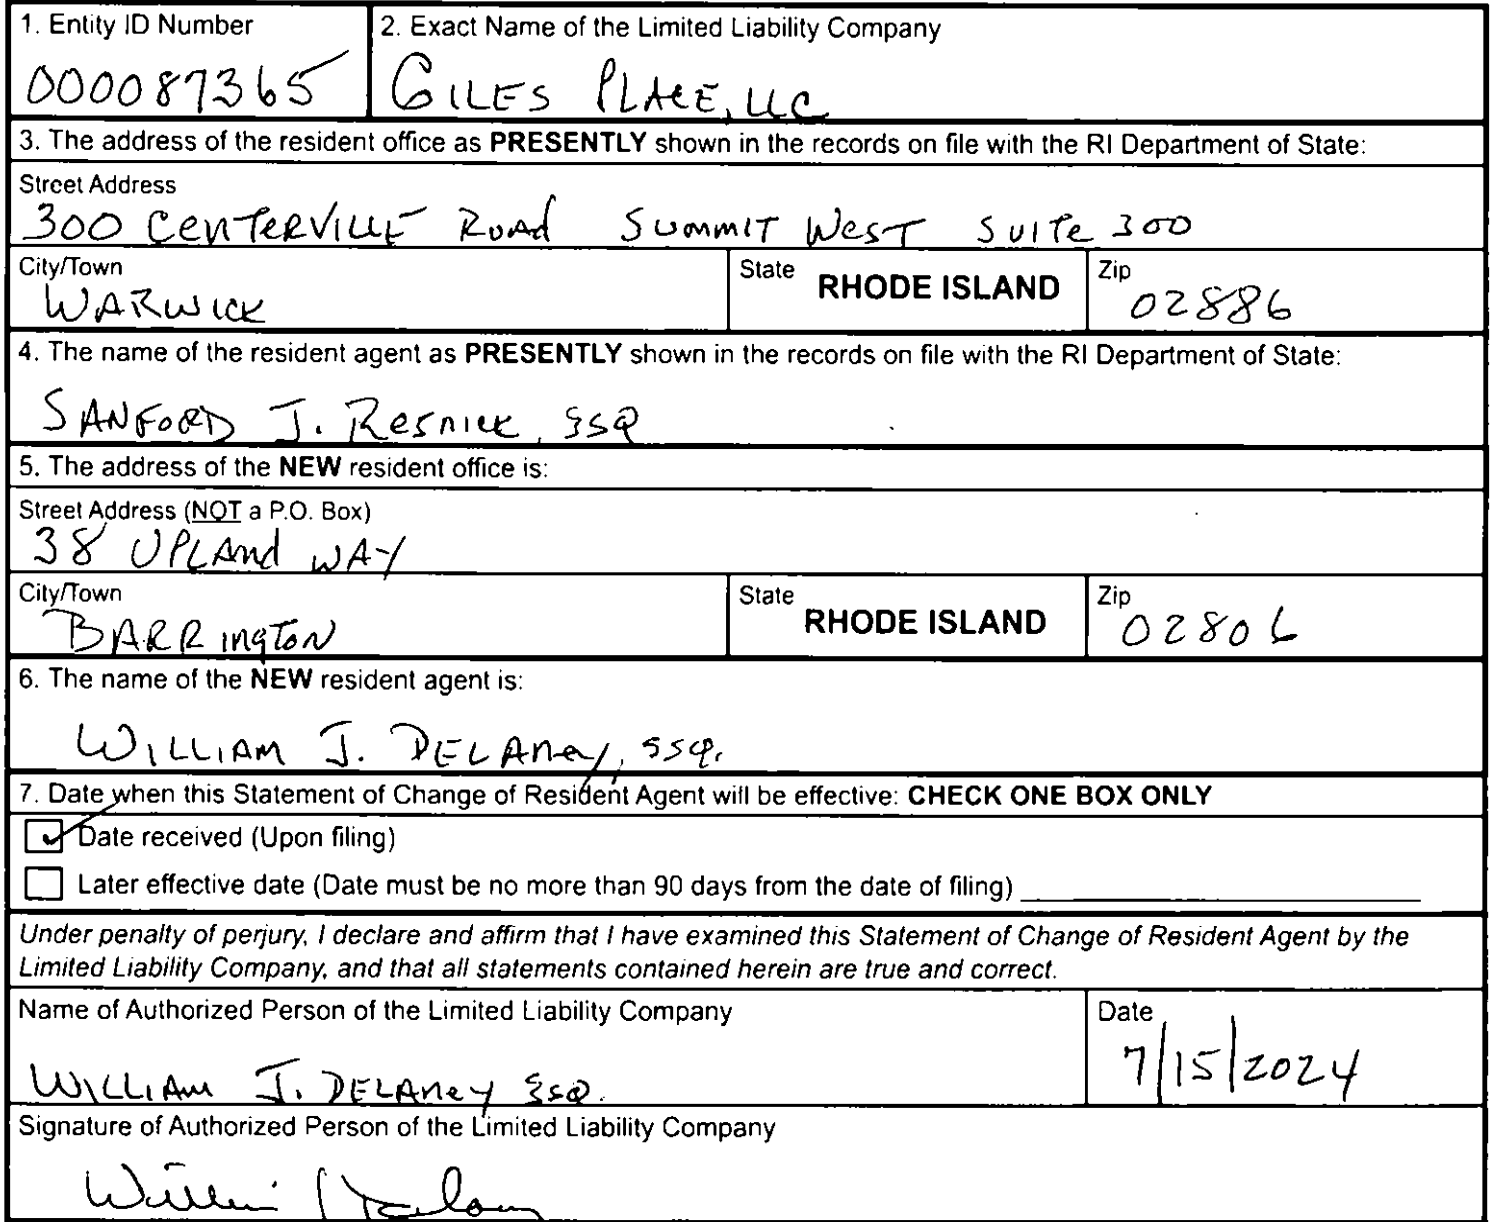 1. Entity ID Number
000087365
2. Exact Name of the Limited Liability Company
GILES PLACE, LLC
3. The address of the resident office as PRESENTLY shown in the records on file with the RI Department of State:
Street Address
300 CENTERVILLE ROAD SUMMIT WEST SUITE 300
City/Town
WARWICK
State RHODE ISLAND
Zip
02886
4. The name of the resident agent as PRESENTLY shown in the records on file with the RI Department of State:
SANFORD J. Resnick, ESQ
5. The address of the NEW resident office is:
Street Address (NOT a P.O. Box)
38 UPLAnd WAY
City/Town
BARRington
State RHODE ISLAND
Zip
02806
6. The name of the NEW resident agent is:
WILLIAM J. DELANey, ESQ.
7. Date when this Statement of Change of Resident Agent will be effective: CHECK ONE BOX ONLY
Date received (Upon filing)
Later effective date (Date must be no more than 90 days from the date of filing)
Under penalty of perjury, I declare and affirm that I have examined this Statement of Change of Resident Agent by the
Limited Liability Company, and that all statements contained herein are true and correct.
Name of Authorized Person of the Limited Liability Company
WILLIAM J. DELANEY ESQ.
Date
7/15/2024
Signature of Authorized Person of the Limited Liability Company
William J Delaney